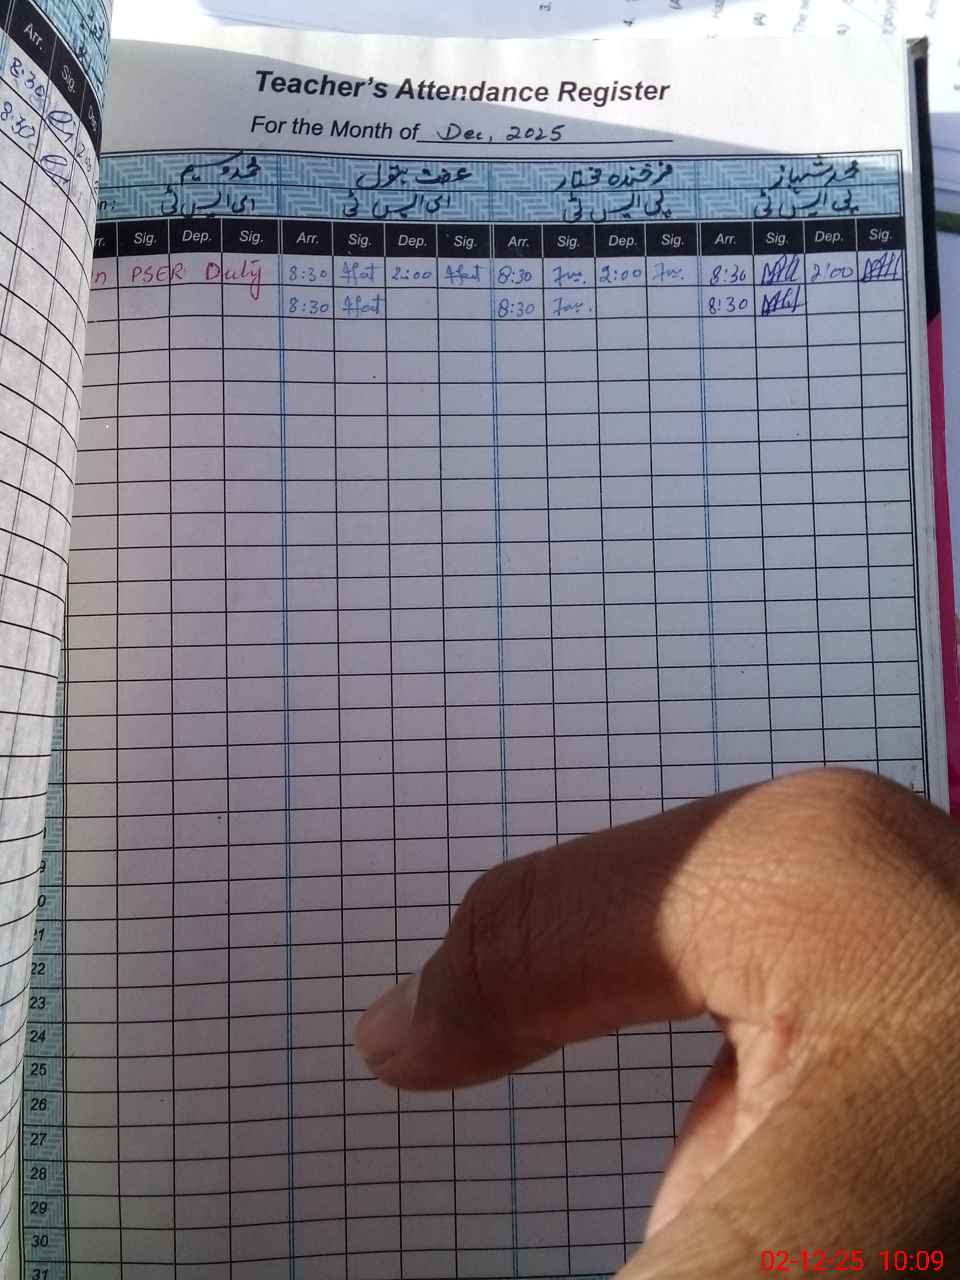 Teacher's Attendance Register
For the Month of Dec, 2025
محمد وسیم عفت بتول فرخندہ مختار محمد شہباز
ای ایس ٹی ای ایس ٹی پی ایس ٹی پی ایس ٹی
Arr. Sig.
Sig. Dep. Sig. Arr. Sig. Dep. Sig. Arr. Sig. Dep. Sig. Arr. Sig. Dep. Sig.
8:30
8:30
on PSER Duty 8:30 Ifat 2:00 Ifat 8:30 2:00 8:30 2:00
8:30 Ifat 8:30 8:30
22
23
24
25
26
27
28
29
30
31
02-12-25 10:09